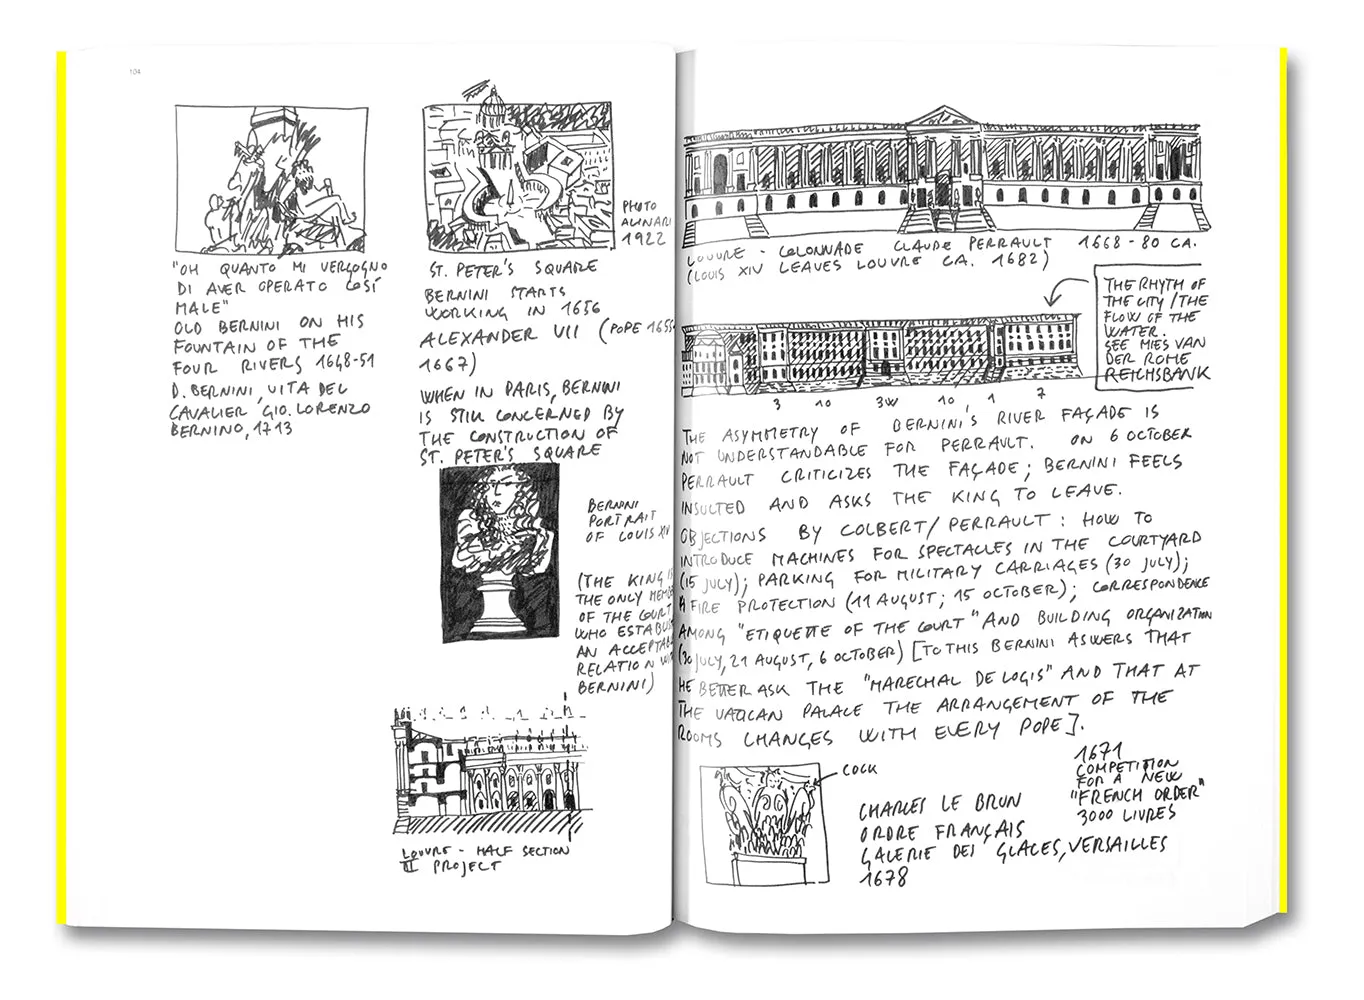 104
"OH QUANTO MI VERGOGNO
DI AVER OPERATO COSÍ
MALE"
OLD BERNINI ON HIS
FOUNTAIN OF THE
FOUR RIVERS 1648-51
D. BERNINI, VITA DEL
CAVALIER GIO. LORENZO
BERNINO, 1713
PHOTO
ALINARI
1922
ST. PETER'S SQUARE
BERNINI STARTS
WORKING IN 1656
ALEXANDER VII (POPE 1655
1667)
WHEN IN PARIS, BERNINI
IS STILL CONCERNED BY
THE CONSTRUCTION OF
ST. PETER'S SQUARE
BERNINI
PORTRAIT
OF LOUIS XIV
(THE KING IS
THE ONLY
OF THE COURT
WHO
AN
RELATION
BERNINI)
LOUVRE - HALF SECTION
III PROJECT
LOUVRE - COLONNADE CLAUDE PERRAULT 1668-80 CA.
(LOUIS XIV LEAVES LOUVRE CA. 1682)
THE RHYTH OF
THE CITY / THE
FLOW OF THE
WATER.
SEE MIES VAN
DER ROHE
REICHSBANK
3 10 3W 10 1 7
THE ASYMMETRY OF BERNINI'S RIVER FAÇADE IS
NOT UNDERSTANDABLE FOR PERRAULT. ON 6 OCTOBER
PERRAULT CRITICIZES THE FAÇADE; BERNINI FEELS
INSULTED AND ASKS THE KING TO LEAVE.
OBJECTIONS BY COLBERT/PERRAULT: HOW TO
INTRODUCE MACHINES FOR SPECTACLES IN THE COURTYARD
(15 JULY); PARKING FOR MILITARY CARRIAGES (30 JULY);
A FIRE PROTECTION (11 AUGUST; 15 OCTOBER); CORRESPONDENCE
AMONG "ETIQUETTE OF THE COURT" AND BUILDING ORGANIZATION
(30 JULY, 21 AUGUST, 6 OCTOBER) [TO THIS BERNINI ASWERS THAT
HE BETTER ASK THE "MARECHAL DE LOGIS" AND THAT AT
THE VATICAN PALACE THE ARRANGEMENT OF THE
ROOMS CHANGES WITH EVERY POPE].
COCK
CHARLES LE BRUN
ORDRE FRANÇAIS
GALERIE DES GLACES, VERSAILLES
1678
1671
COMPETITION
FOR A NEW
"FRENCH ORDER"
3000 LIVRES